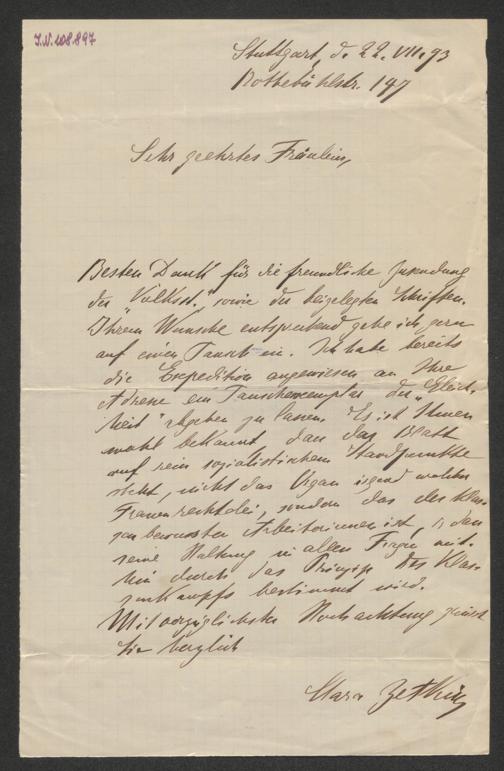 J.N. 108.897
Stuttgart, d. 22. VII. 93
Rothebühlstr. 147
Sehr geehrtes Fräulein,
Besten Dank für die freundliche Zusendung
der "Volksst." sowie der beigelegten Schriften.
Ihrem Wunsche entsprechend gehe ich gern
auf einen Tausch ein. Ich habe bereits
die Expedition angewiesen an Ihre
Adresse ein Tauschexemplar der "Gleich-
heit" abgehen zu lassen. Es ist Ihnen
wohl bekannt, dass das Blatt
auf rein sozialistischem Standpunkte
steht, nicht das Organ irgend welcher
Frauenrechtelei, sondern das der klas-
senbewussten Arbeiterinnen ist, dass
seine Haltung in allen Fragen mit-
hin durch das Prinzip des Klas-
senkampfs bestimmt wird.
Mit vorzüglichster Hochachtung grüsst
Sie herzlich
Clara Zetkin